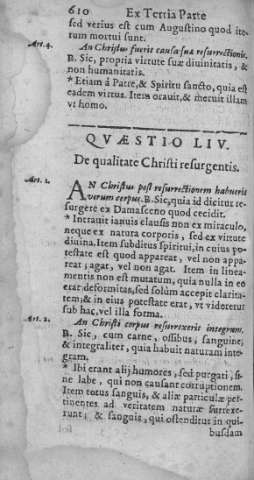 610 Ex Tertia Parte
sed verius est cum Augustino quod ite-
rum mortui sunt.
Art. 4. An Christus fuerit causa suæ resurrectionis.
R. Sic, propria virtute suæ diuinitatis, &
non humanitatis.
* Etiam à Patre, & Spiritu sancto, quia est
eadem virtus. Item orauit, & meruit illam
vt homo.
QVÆSTIO LIV.
De qualitate Christi resurgentis.
Art. 1. AN Christus post resurrectionem habuerit
verum corpus. R. Sic, quia id dicitur re-
surgere ex Damasceno quod cecidit.
* Intrauit ianuis clausis non ex miraculo,
neque ex natura corporis, sed ex virtute
diuina. Item subditus spiritui, in cuius po-
testate est quod appareat, vel non appa-
reat; agat, vel non agat. Item in linea-
mentis non est mutatum, quia nulla in eo
erat deformitas, sed solùm accepit clarita-
tem; & in eius potestate erat, vt videretur
sub hac, vel illa forma.
Art. 2. An Christi corpus resurrexerit integrum.
R. Sic, cum carne, ossibus, sanguine,
& integraliter, quia habuit naturam inte-
gram.
* Ibi erant alij humores, sed purgati, si-
ne labe, qui non causant corruptionem.
Item totus sanguis, & aliæ particulæ per-
tinentes ad veritatem naturæ surrexe-
runt; & sanguis, qui ostenditur in qui-
busdam